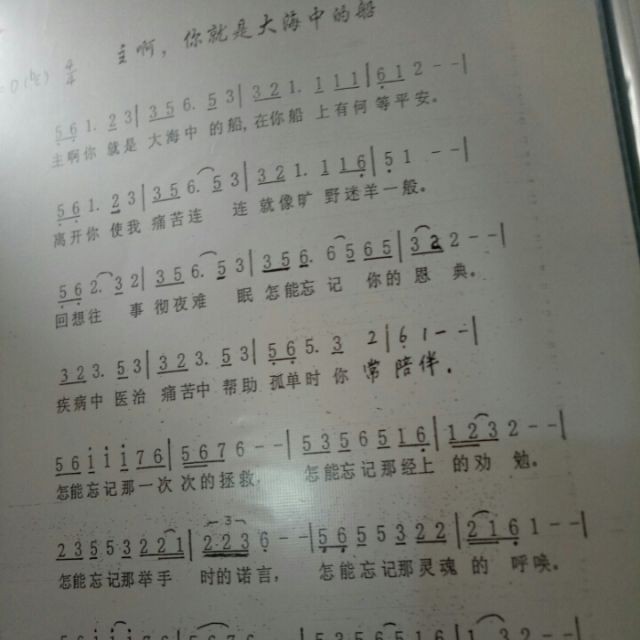 主啊，你就是大海中的船
5 6 1. 2 3 | 3 5 6. 5 3 | 3 2 1. 1 1 1 | 6 1 2 - - |
主啊你 就是 大海中 的船,在你船 上有何 等平安。
5 6 1. 2 3 | 3 5 6. 5 3 | 3 2 1. 1 1 6 | 5 1 - - |
离开你 使我 痛苦连 连 就像旷 野迷羊一般。
5 6 2. 3 2 | 3 5 6. 5 3 | 3 5 6. 6 5 6 5 | 3 2 2 - - |
回想往 事 彻夜难 眠 怎能忘记 你的 恩 典。
3 2 3. 5 3 | 3 2 3. 5 3 | 5 6 5. 3 2 | 6 1 - - |
疾病中 医治 痛苦中 帮助 孤单时 你 常 陪伴.
5 6 1 1 1 7 6 | 5 6 7 6 - - | 5 3 5 6 5 1 6 | 1 2 3 2 - - |
怎能忘记那一次 次的拯救, 怎能忘记那经上 的劝 勉。
2 3 5 5 3 2 2 1 | 2 2 3 6 - - | 5 6 5 5 3 2 2 | 2 1 6 1 - - |
怎能忘记那举手 时的诺言, 怎能忘记那灵魂 的 呼唤。